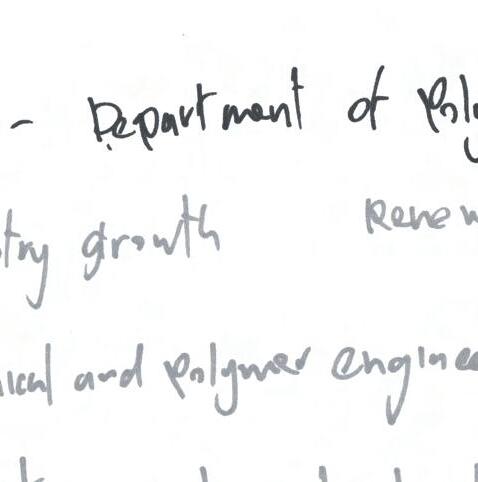 - Department of Poly
try growth Renew
ical and polymer enginee